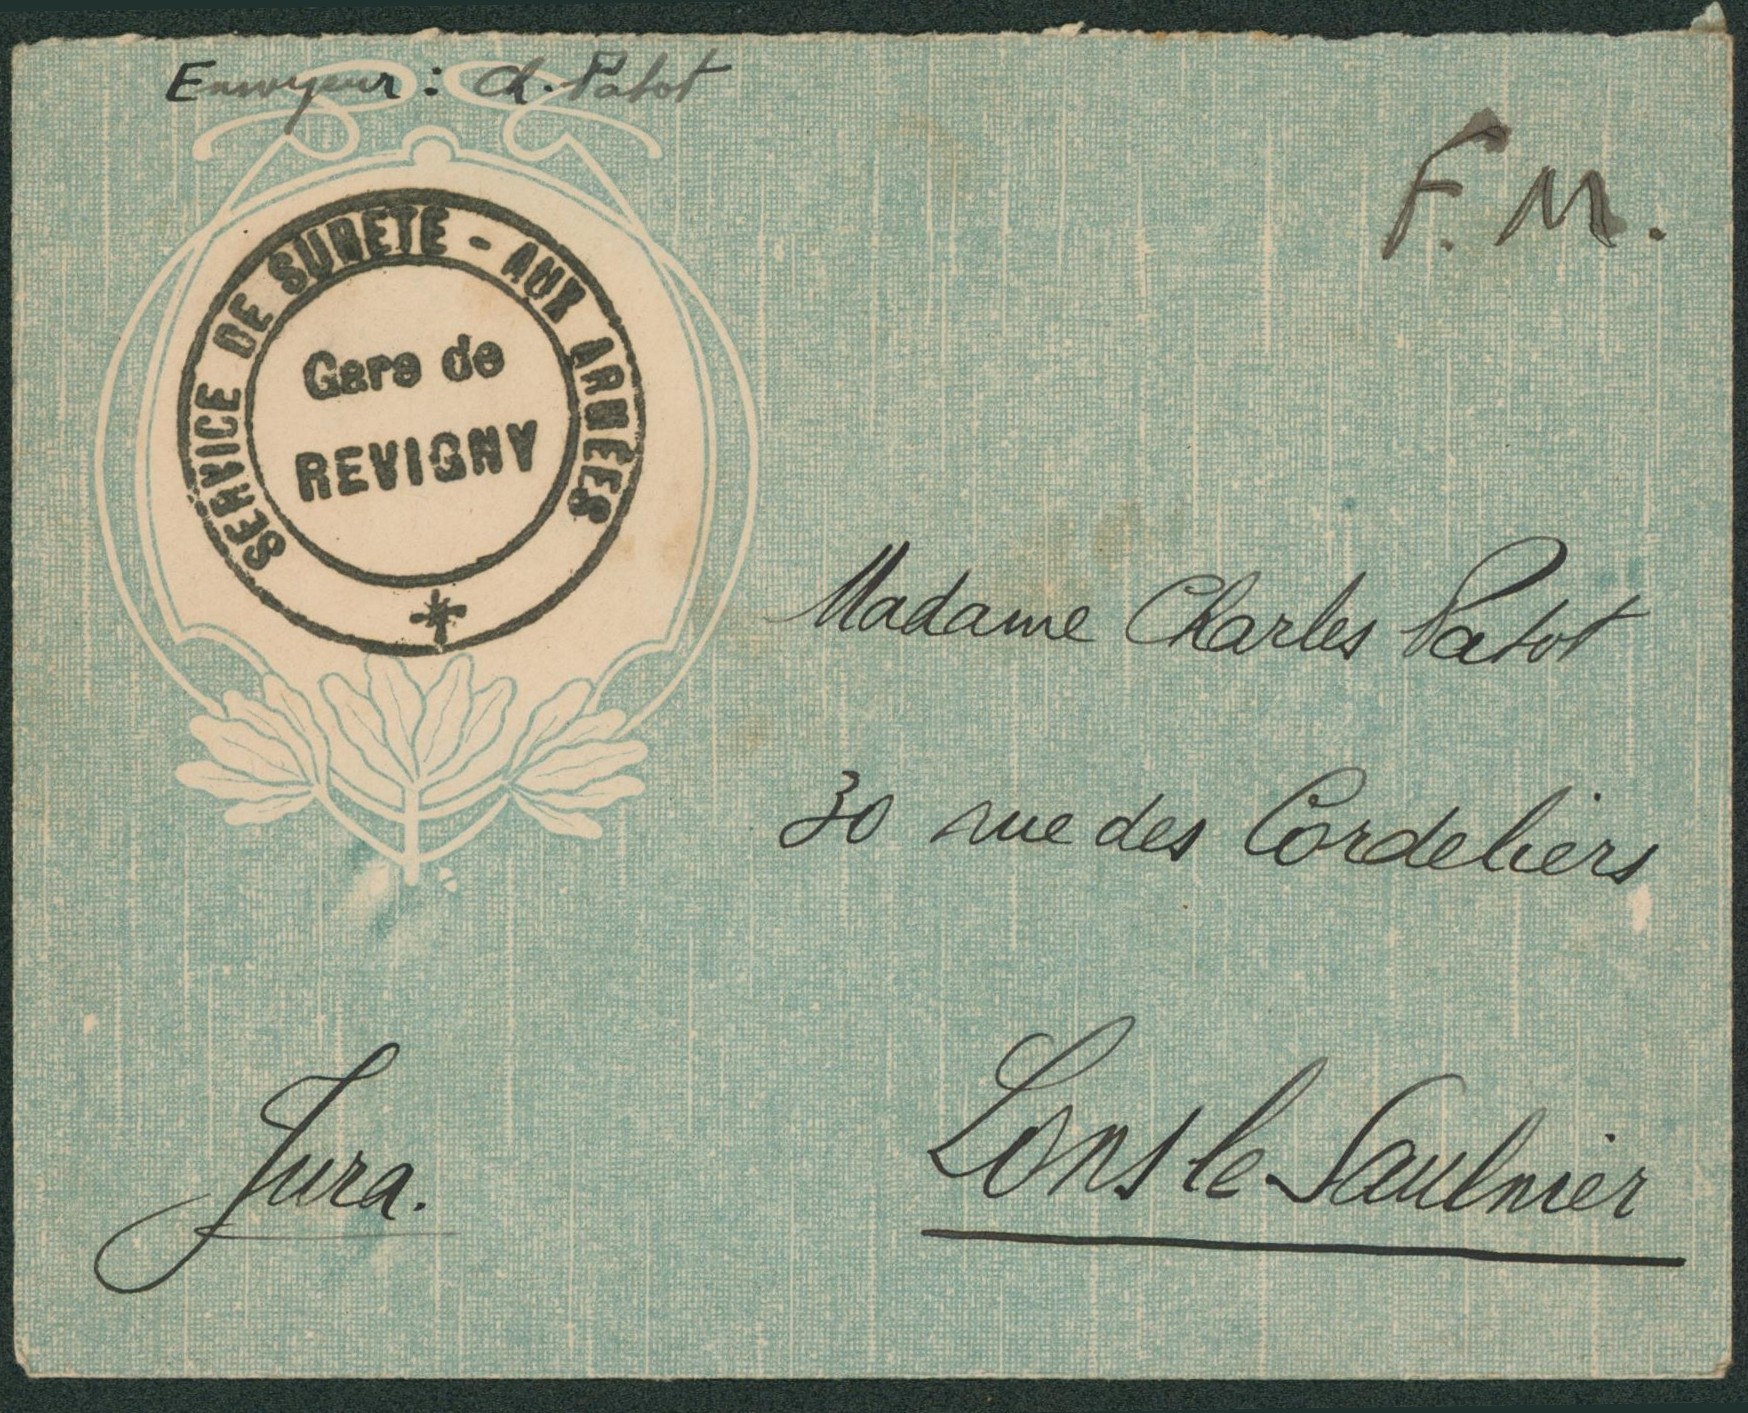 Envoyeur : Ch. Patot
F. M.
SERVICE DE SURETE - AUX ARMÉES
Gare de
REVIGNY
Madame Charles Patot
30 rue des Cordeliers
Lons le Saulnier
Jura.